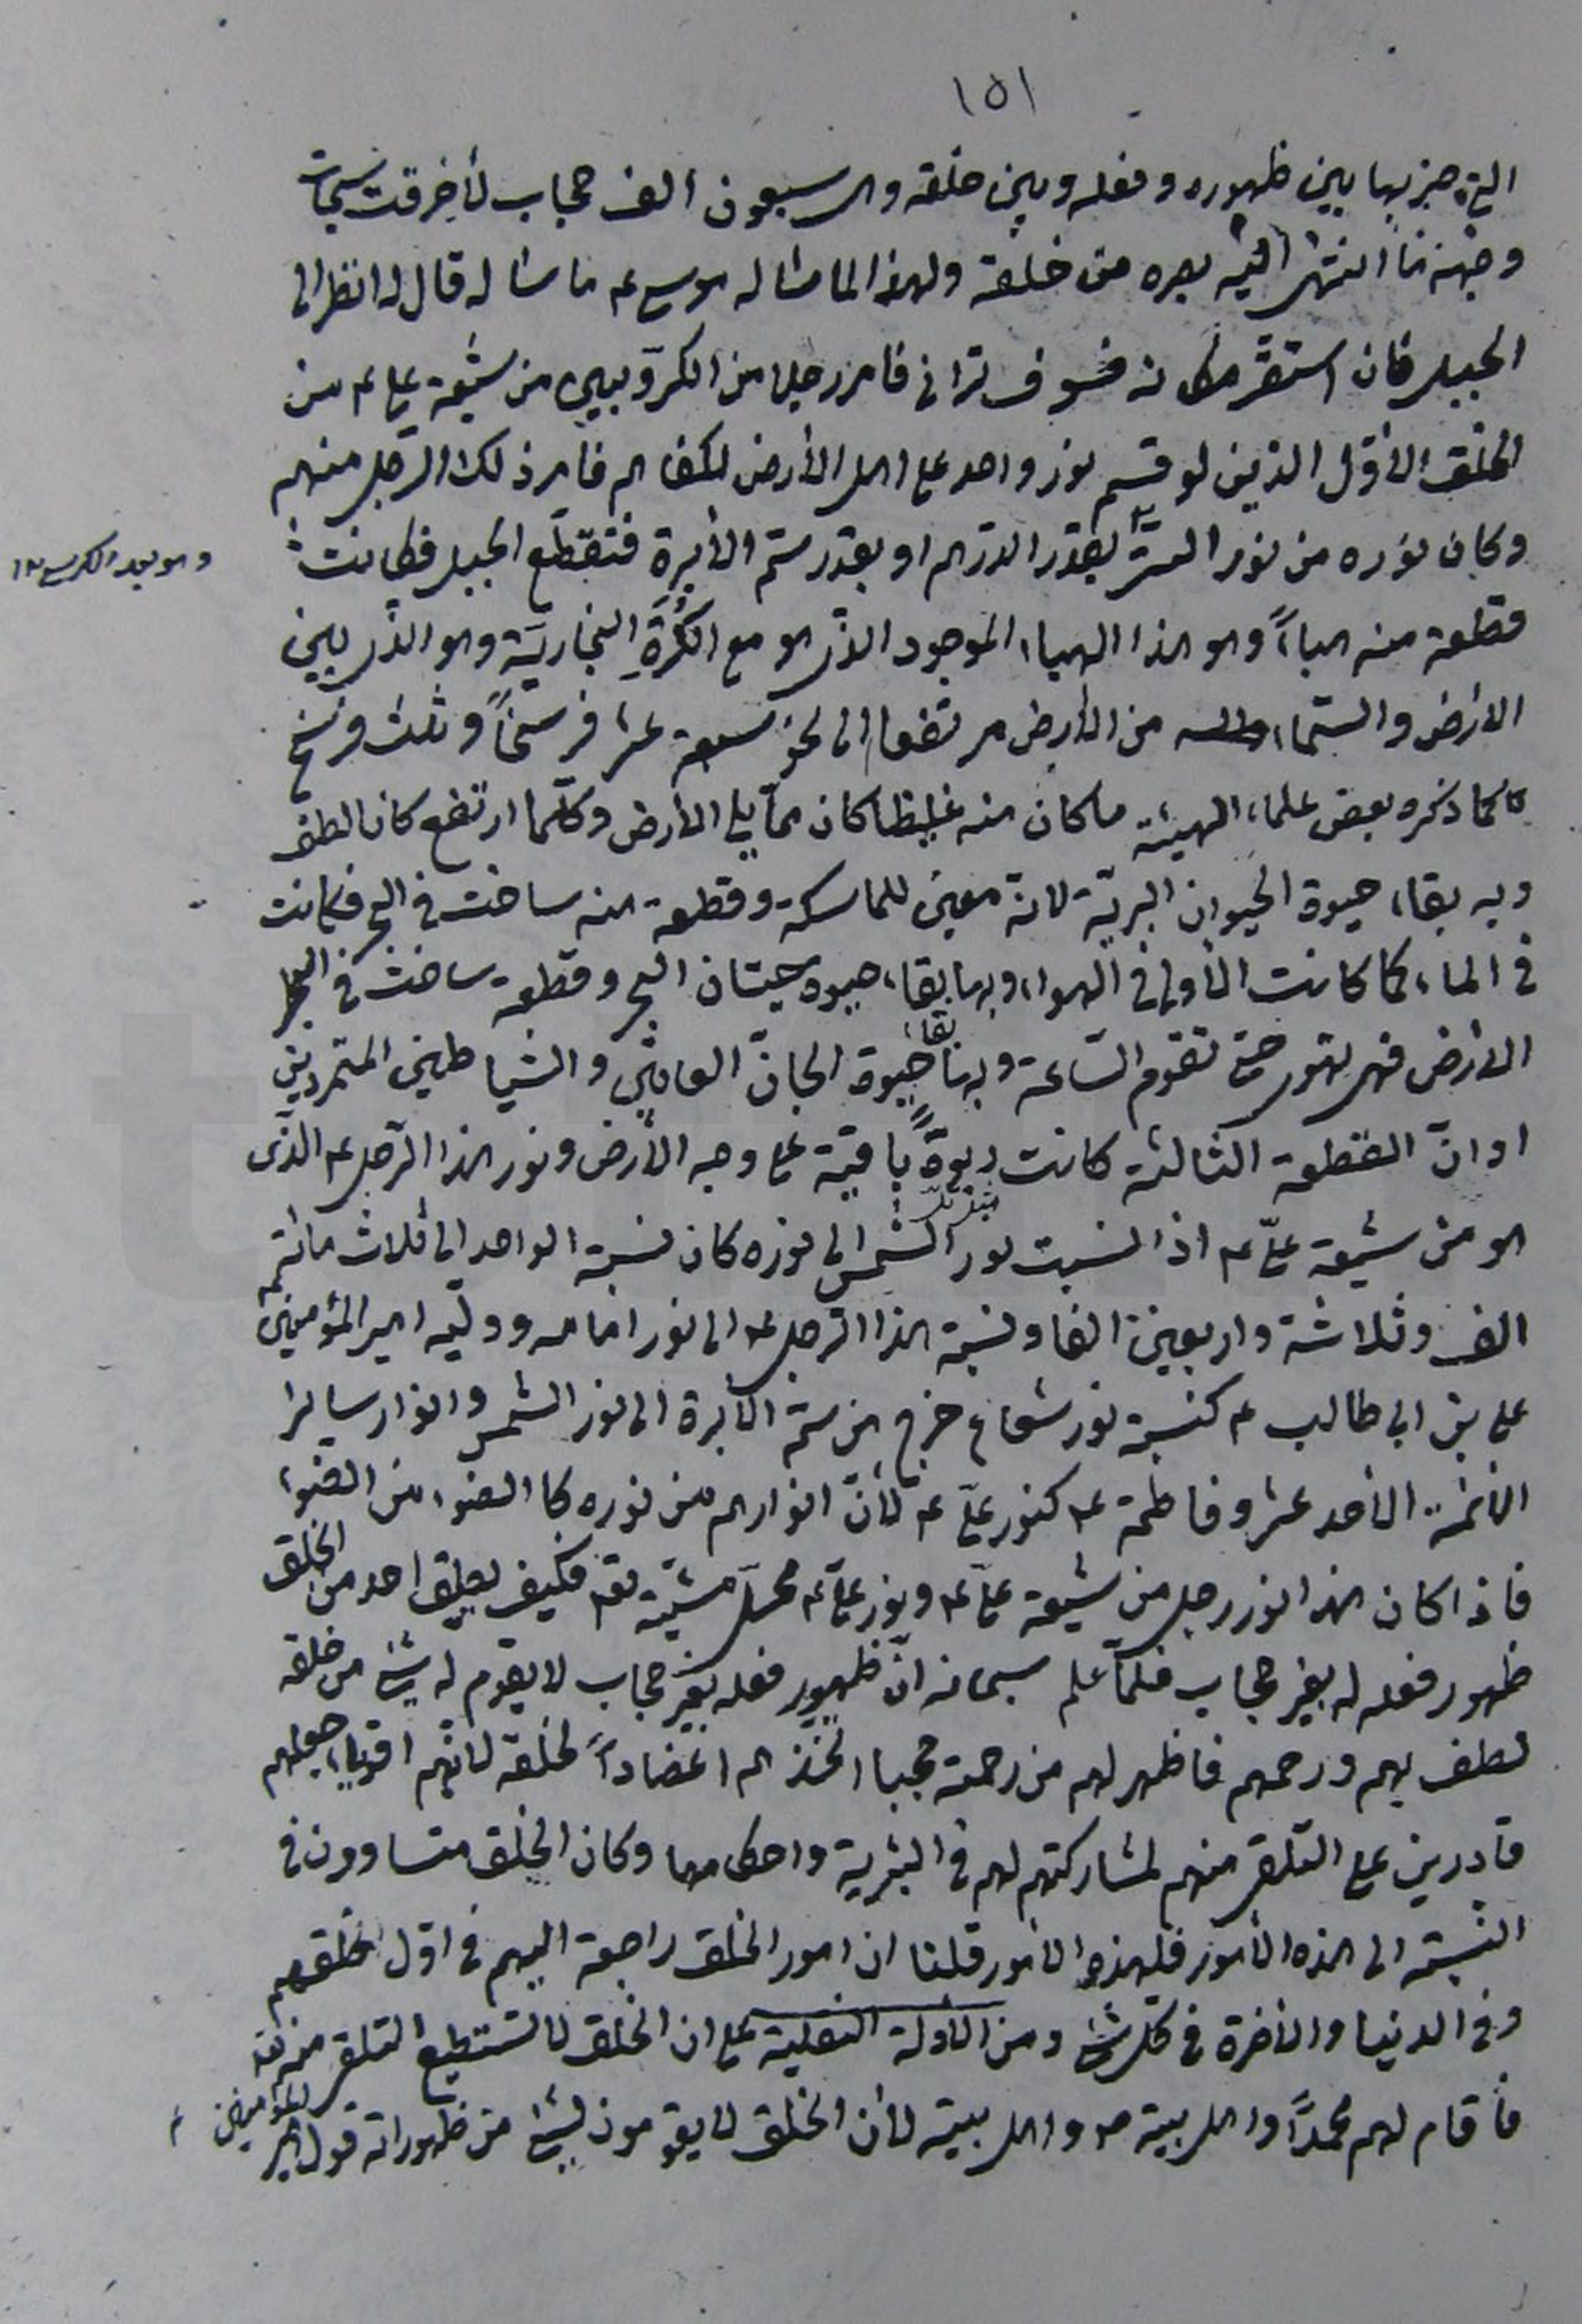 ١٥١
التي حجز بها بين ظهوره وفعله وبين خلقه والسبعون ألف حجاب لأحرقت سبحات
وجهه ما انتهى اليه بصره من خلقه ولهذا لما سئاله موسى ع ما سئاله قال له انظر الى
الجبل فان استقر مكانه فسوف تراني فامر رجلا من الكرّوبيين من شيعة علي ع من
الخلق الأول الذين لو قسم نور واحد على اهل الأرض لكفاهم فامر ذلك الرجل منهم
وكان نوره من نور الستر بقدر الدرهم او بقدر سم الأبرة فتقطّع الجبل فكانت
وهو يؤيد الكرسي ١٢
قطعة منه هباءً وهو هذا الهباء الموجود الذى هو مع الكُرَةِ البخاريّة وهو الذى بين
الارض والسّماء من الأرض مرتفعا الى نحو سبعة عشر فرسخاً وثلث فرسخ
كما ذكره بعض علماء الهيئة ما كان منه غليظا كان ممّا يلي الأرض وكلّما ارتفع كان الطف
وبه بقاء حيوة الحيوان البريّة لانه معين للماسكة وقطعة منه ساخت في البحر فكانت
في الماء كما كانت الأولى في الهواء وبها بقاء حيوة حيتان البحر وقطعة ساخت في
الارض فهي تهوى حتى تقوم السّاعة وبها بقاء حيوة الجانّ العاتين والشياطين المتمردين
او انّ القطعة الثالثة كانت ربوةً باقية على وجه الأرض ونور هذا الرّجل ع الذى
هو من شيعة عليّ ع اذا نسبت نور الشمس الى نوره كان نسبة الواحد الى ثلاث مائة
الف وثلاثة واربعين الفا ونسبة هذا الرجل ع الى نور امامه ووليّه امير المؤمنين
علي بن ابي طالب ع كنسبة نور شعاع خرج من سمّ الأبرة الى نور الشمس وانوار ساير
الائمة الأحد عشر وفاطمة ع كنور عليّ ع لأنّ انوارهم من نوره كالضوء من الضوء
فاذا كان هذا نور رجل من شيعة عليّ ع ونور عليّ ع محلّ مشيّته تع فكيف يطيق احد من الخلق
ظهور فعله له بغير حجاب فلمّا علم سبحانه انّ ظهور فعله بغير حجاب لا يقوم له شئ من خلقه
لطف بهم ورحمهم فاظهر لهم من رحمته حجبا اتخذهم اعضاداً لخلقه لانّهم اقوياء جعلهم
قادرين على التلقي منهم لمشاركتهم لهم في البشرية واحكامها وكان الخلق متساوون في
النّسبة الى هذه الأمور فلهذه الأمور قلنا ان امور الخلق راجعة اليهم في اوّل خلقهم
وفي الدنيا والأخرة في كل شئ ومن الأدلّة النقلية على ان الخلق لا تستطيع التلقي منه تع
فأقام لهم محمداً واهل بيته ص واهل بيته لأن الخلق لا يقومون لشئ من ظهوراته قول امير المؤمنين ع